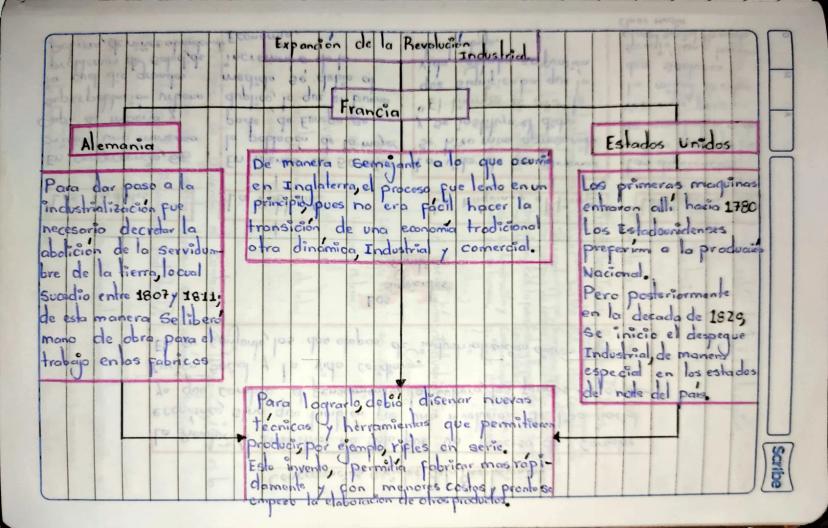 Expanción de la Revolución
Industrial.
Francia
Alemania
Estados Unidos
Para dar paso a la
industrialización fue
necesario decretar la
abolición de la servidum-
bre de la tierra, lo cual
Sucedio entre 1807 y 1811;
de esta manera Se liberó
mano de obra para el
trabajo en las fabricas
De manera Semejante a lo que ocurrió
en Inglaterra, el proceso fue lento en un
principio, pues no era fácil hacer la
transición de una economía tradicional
otra dinámica, Industrial y comercial.
Las primeras maquinas
entraron allí hacia 1780
Los Estadounidenses
preferían a la producción
Nacional.
Pero posteriormente
en la decada de 1829,
Se inicio el despegue
Industrial, de manera
especial en los estados
del norte del país.
Para lograrlo, debió diseñar nuevas
técnicas y herramientas que permitieron
producir, por ejemplo, rifles en serie.
Este invento, permitía fabricar mas rápi-
damente y con menores costos, pronto se
empezo la elaboración de otros productos.
Scribe